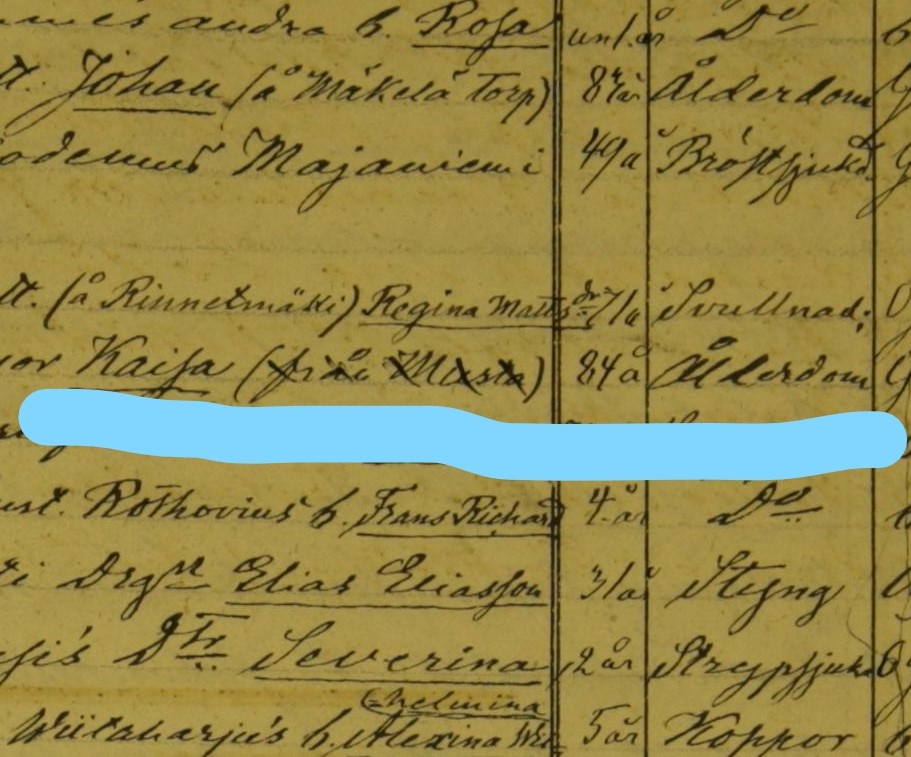 andra b. Rosa un/.år Do
tt. Johan (å Mäkelä Torp) 87 år Ålderdom
odemus Majaniemi 49 å Bröstsjukd.
tt. (å Rinnetmäki) Regina Matts dr 71 å Svullnad;
or Kaisa (från Musta) 84 å Ålderdom
ust. Rothovius b. Frans Richard 4 år Do
Drgn Elias Eliasson 31 år Styng
Dtr Severina 2 år Strypsjuk
(helmina
Wiitaharjus b. Alexina 5 år Koppor